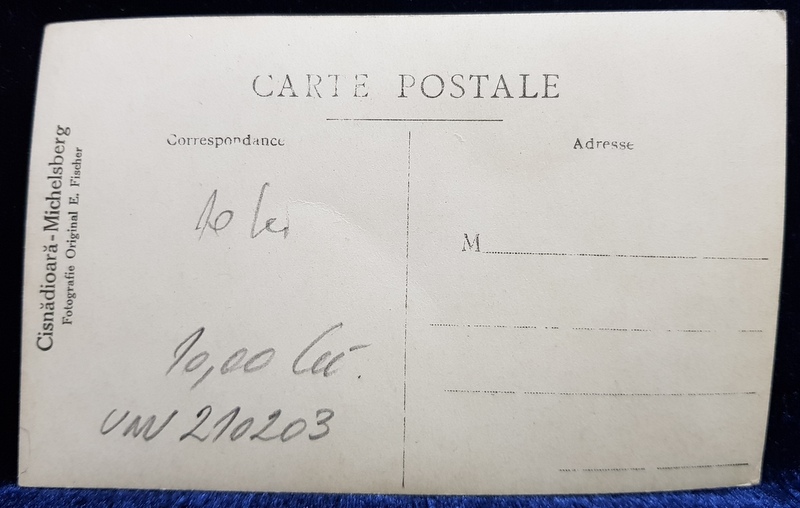 CARTE POSTALE
Correspondance
Adresse
Cisnădioară-Michelsberg
Fotografie Original E. Fischer
10 lei
M
10,00 Lei.
UNV 210203